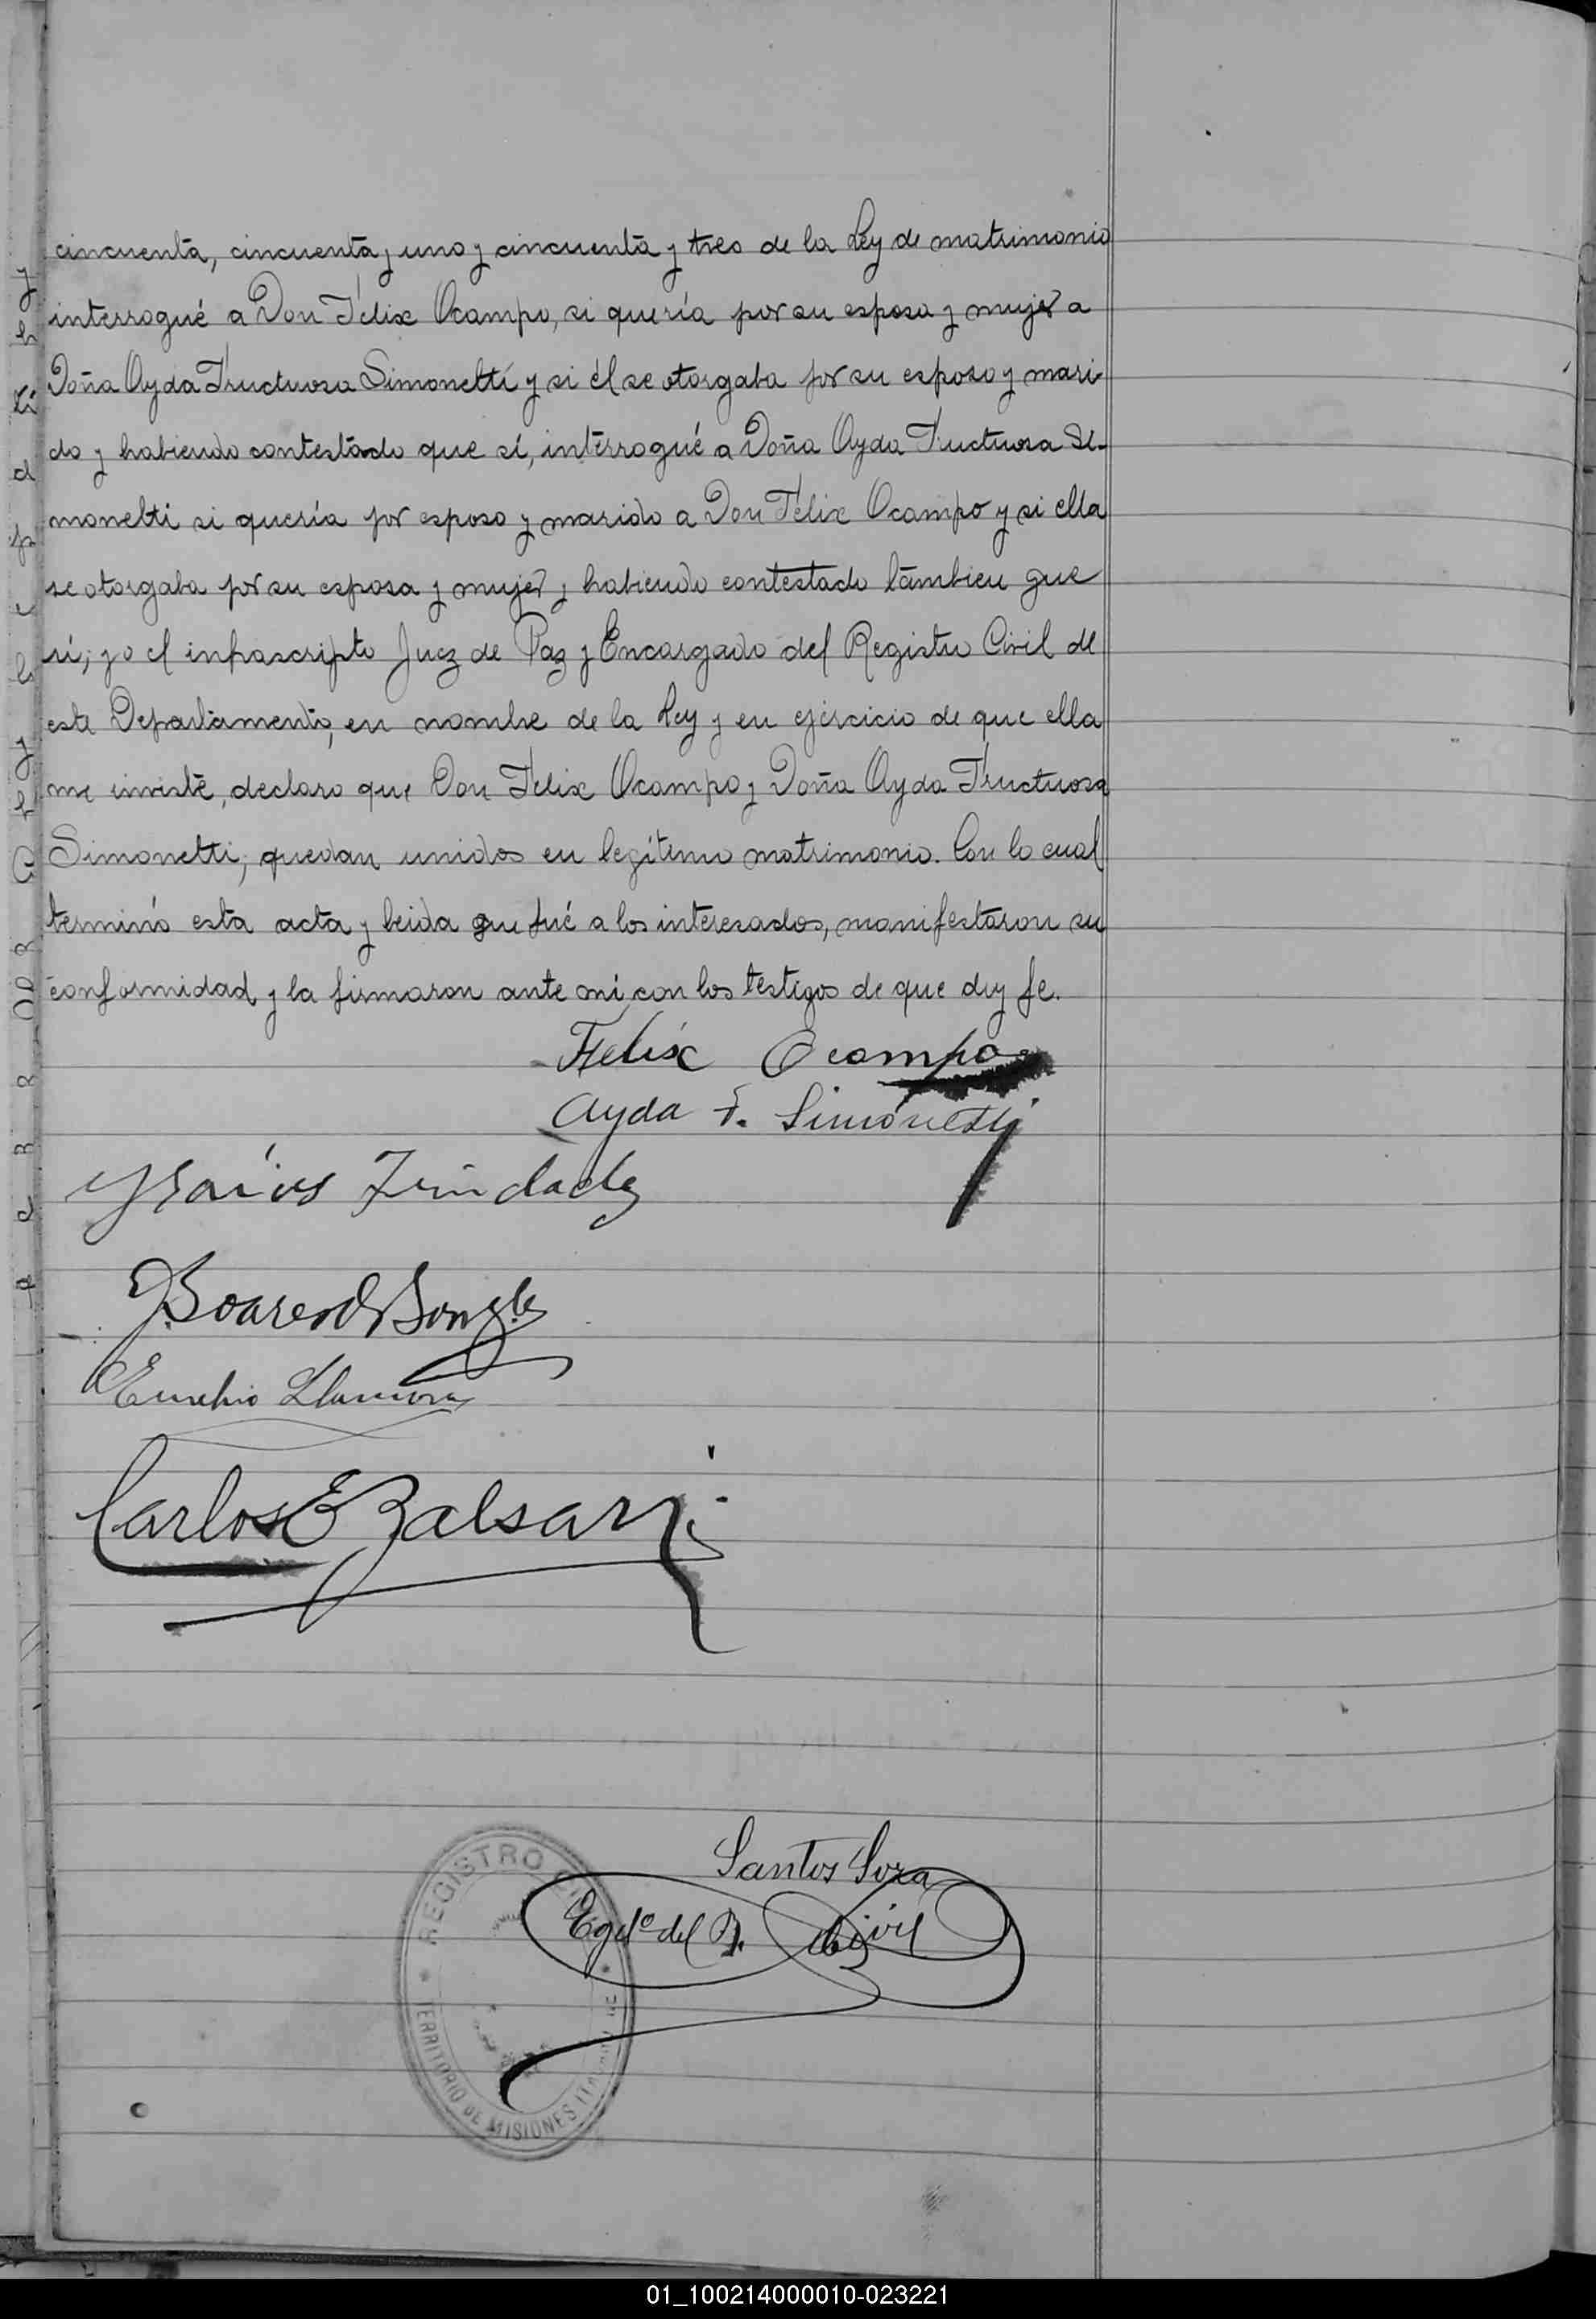 cincuenta, cincuenta y uno y cincuenta y tres de la Ley de matrimonio
interrogué a Don Félix Ocampo, si quería por su esposa y mujer a
Doña Ayda Fructuosa Simonetti y si él se otorgaba por su esposo y mari-
do y habiendo contestado que sí, interrogué a Doña Ayda Fructuosa Si-
monetti si quería por esposo y marido a Don Félix Ocampo y si ella
se otorgaba por su esposa y mujer y habiendo contestado tambien que
sí; yo el infrascripto Juez de Paz y Encargado del Registro Civil de
este Departamento, en nombre de la Ley y en ejercicio de que ella
me inviste, declaro que Don Félix Ocampo y Doña Ayda Fructuosa
Simonetti, quedan unidos en legítimo matrimonio. Con lo cual
terminó esta acta y leida que fué a los interesados, manifestaron su
conformidad y la firmaron ante mí con los testigos de que doy fe.
Félix Ocampo
Ayda F. Simonetti
Trindade
Eusebio Llamora
Carlos E Balsari
Santos Soza
Egdo del R. Civil
REGISTRO
TERRITORIO DE MISIONES
01_100214000010-023221